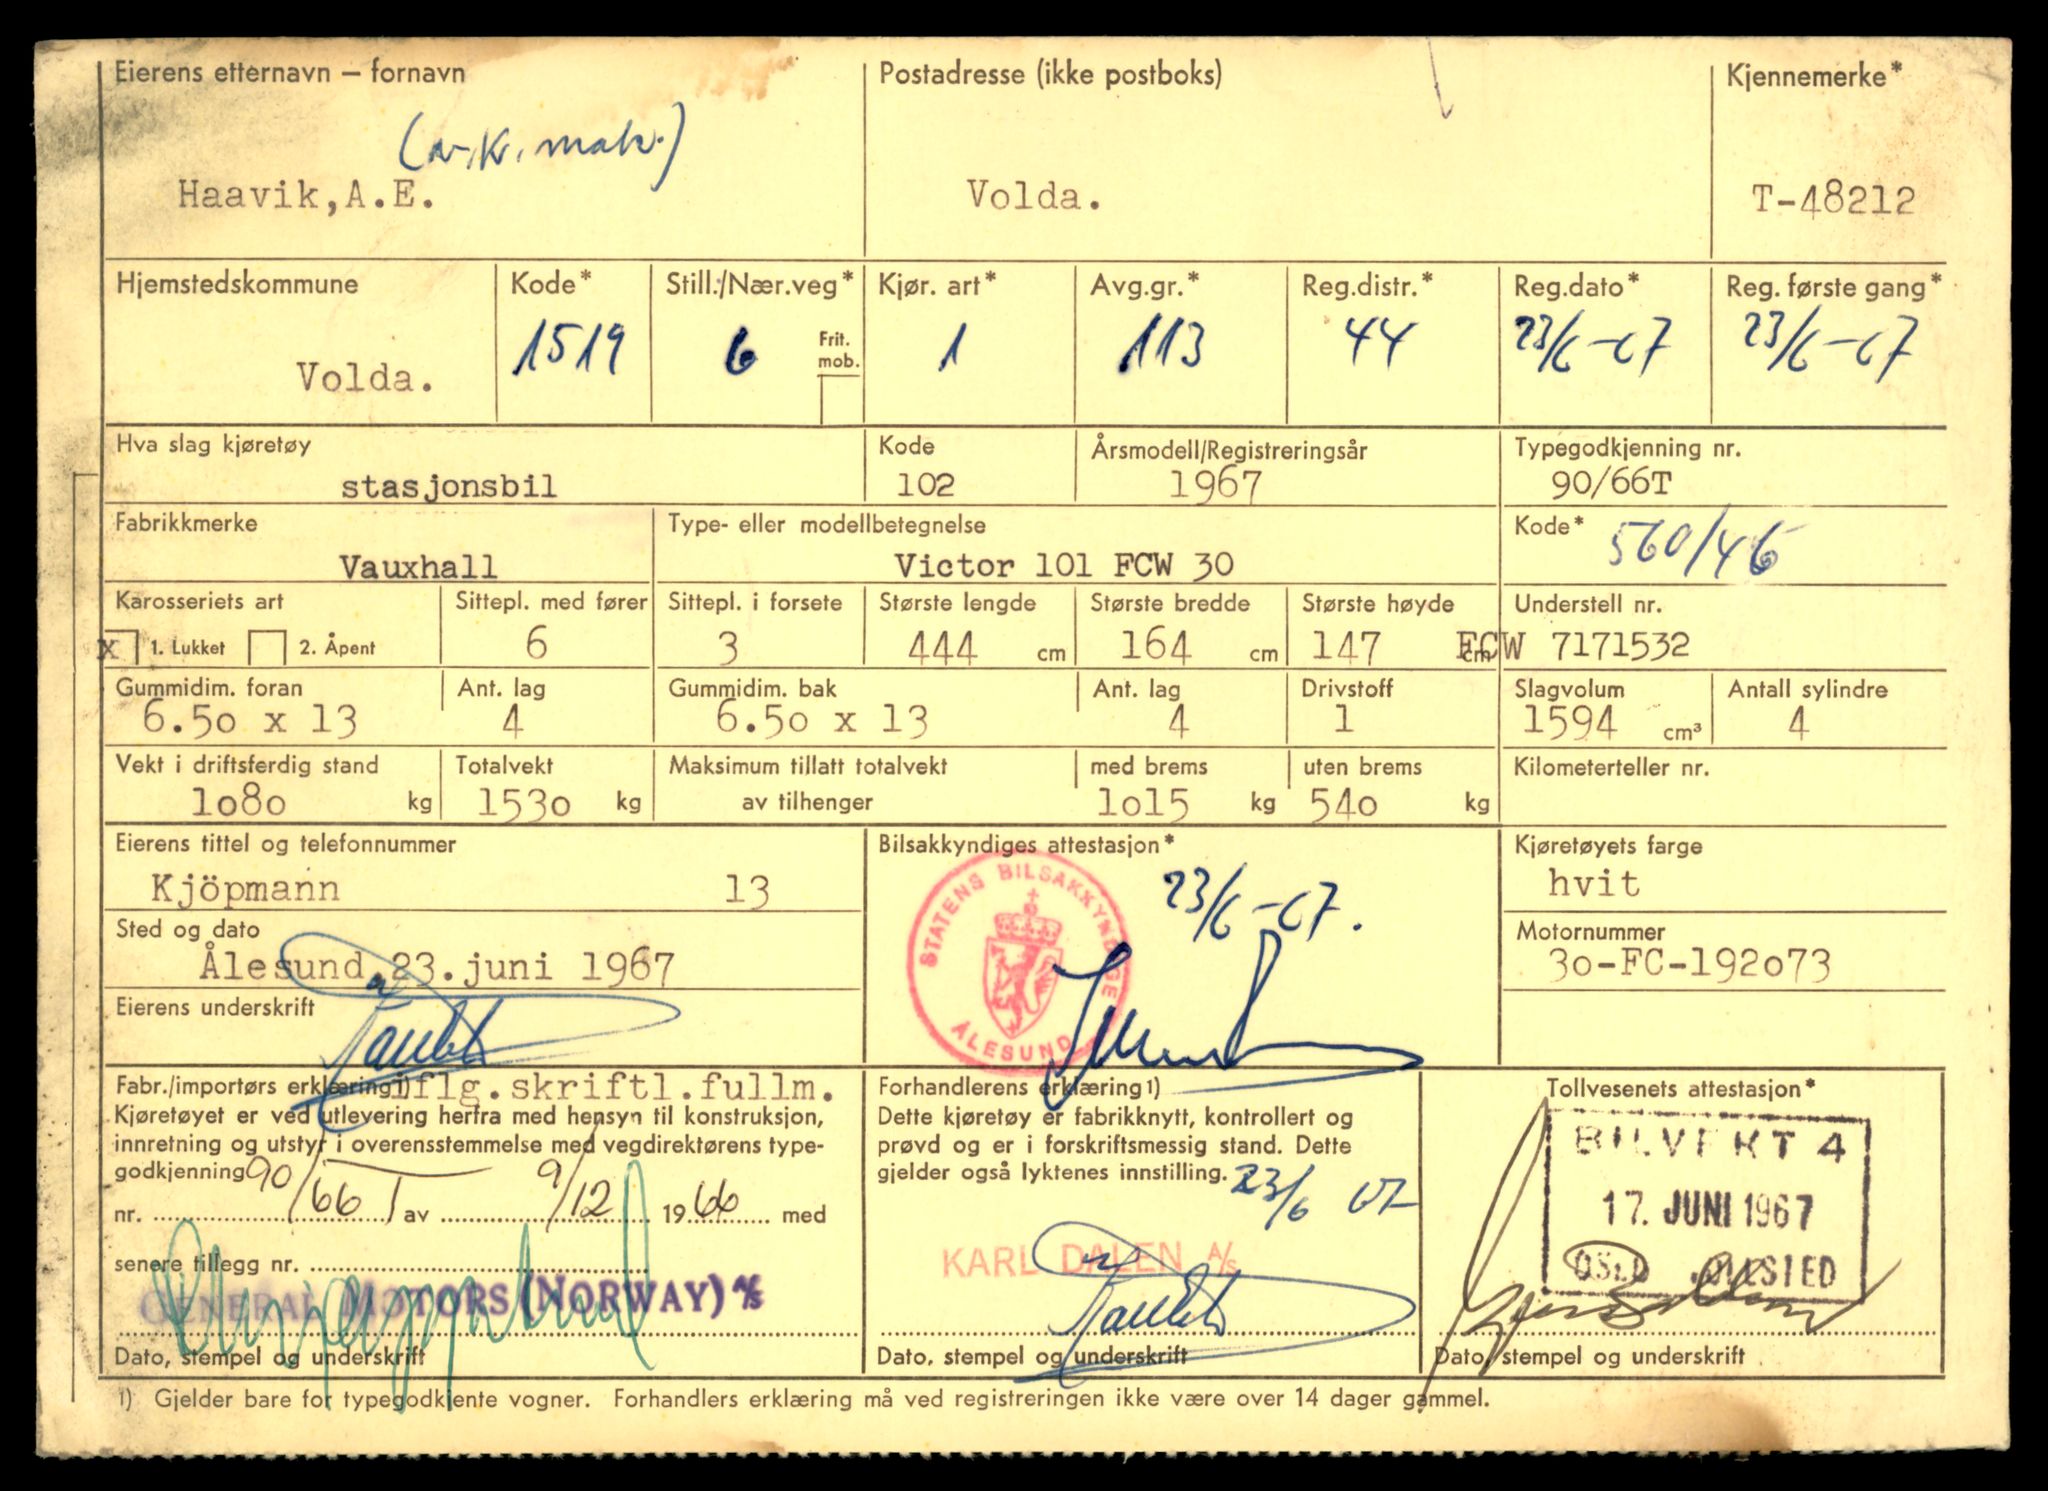 Eierens etternavn – fornavn
Postadresse (ikke postboks)
Kjennemerke*
Haavik,A.E.
Volda.
T-48212
Hjemstedskommune
Kode*
Still./Nær.veg*
Kjør. art*
Avg.gr.*
Reg.distr.*
Reg.dato*
Reg. første gang*
Volda.
1519
6
Frit. mob.
1
113
44
23/6-67
23/6-67
Hva slag kjøretøy
Kode
Årsmodell/Registreringsår
Typegodkjenning nr.
stasjonsbil
102
1967
90/66T
Fabrikkmerke
Type- eller modellbetegnelse
Kode*
560/46
Vauxhall
Victor 101 FCW 30
Karosseriets art
Sittepl. med fører
Sittepl. i forsete
Største lengde
Største bredde
Største høyde
Understell nr.
x 1. Lukket
2. Åpent
6
3
444 cm
164 cm
147 cm
FCW 7171532
Gummidim. foran
Ant. lag
Gummidim. bak
Ant. lag
Drivstoff
Slagvolum
Antall sylindre
6.50 x 13
4
6.50 x 13
4
1
1594 cm³
4
Vekt i driftsferdig stand
Totalvekt
Maksimum tillatt totalvekt
med brems
uten brems
Kilometerteller nr.
1080 kg
1530 kg
av tilhenger
1015 kg
540 kg
Eierens tittel og telefonnummer
Bilsakkyndiges attestasjon*
Kjøretøyets farge
Kjöpmann 13
STATENS BILSAKKYNDIGE
ÅLESUND
23/6-67.
hvit
Sted og dato
Motornummer
Ålesund,23.juni 1967
30-FC-192073
Eierens underskrift
Fabr./importørs erklæring1)
iflg.skriftl.fullm.
Kjøretøyet er ved utlevering herfra med hensyn til konstruksjon,
innretning og utstyr i overensstemmelse med vegdirektørens type-
godkjenning
nr. 90/66 T av 9/12 1966 med
senere tillegg nr.
GENERAL MOTORS (NORWAY) A/S
Dato, stempel og underskrift
Forhandlerens erklæring1)
Dette kjøretøy er fabrikknytt, kontrollert og
prøvd og er i forskriftsmessig stand. Dette
gjelder også lyktenes innstilling.
23/6 67
KARL DALEN A/S
Dato, stempel og underskrift
Tollvesenets attestasjon*
BILVEKT 4
17. JUNI 1967
OSLO
Dato, stempel og underskrift
1) Gjelder bare for typegodkjente vogner. Forhandlers erklæring må ved registreringen ikke være over 14 dager gammel.